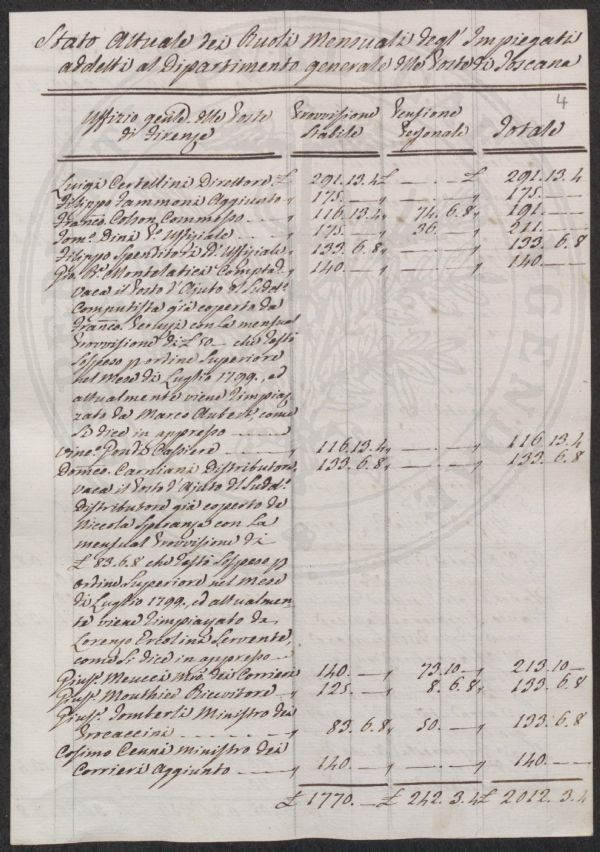 Stato Attuale dei Ruoli Mensuali degl' Impiegati
addetti al Dipartimento generale delle Poste di Toscana
4
Uffizio gen̄le. delle Poste di Firenze | Provvisione Stabile | Pensione Personale | Totale
Luigi Certellini Direttore £ 291.13.4 £ —.— £ 291.13.4
Filippo Tammoni Aggiunto „ 175.— „ —.— „ 175.—
Franco. Colson Commesso „ 116.13.4 „ 74.6.8 „ 191.—
Tomo. Dini Po. Uffiziale „ 175.— „ 36.— „ 211.—
Filippo Spenditori 2o. Uffiziale „ 133.6.8 „ —.— „ 133.6.8
Gio. Ba. Montelatici Computa. „ 140.— „ —.— „ 140.—
Vaca il Posto d'Ajuto d. Sudo.
Computista già coperto da
Franco. Verluzi con la mensual
Provvisione di £ 50— che restò
Sospeso p ordine Superiore
nel Mese di Luglio 1799., ed
attualmente viene rimpiaz-
zato da Marco Aubert, come
Si dice in appresso
Vinco. Ponti Cassiere „ 116.13.4 „ —.— „ 116.13.4
Domco. Carniani Distributore „ 133.6.8 „ —.— „ 133.6.8
Vaca il Posto d'Ajuto d. Sudo.
Distributore già coperto da
Niccola Speranza con La
mensual Provvisione di
£ 83.6.8 che restò Sospeso p
ordine Superiore nel Mese
di Luglio 1799., ed attualmen-
te viene rimpiazzato da
Lorenzo Ercolini Servente,
come Si dice in appresso
Giuspe. Meucci Mro. dei Corrieri „ 140.— „ 73.10— „ 213.10—
Giuspe. Ricevitore „ 125.— „ 8.6.8 „ 133.6.8
Giuspe. Tomberli Ministro dei
Procaccini „ 83.6.8 „ 50.— „ 133.6.8
Cosimo Ceuni Ministro dei
Corrieri Aggiunto „ 140.— „ —.— „ 140.—
£ 1770.— £ 242.3.4 £ 2012.3.4